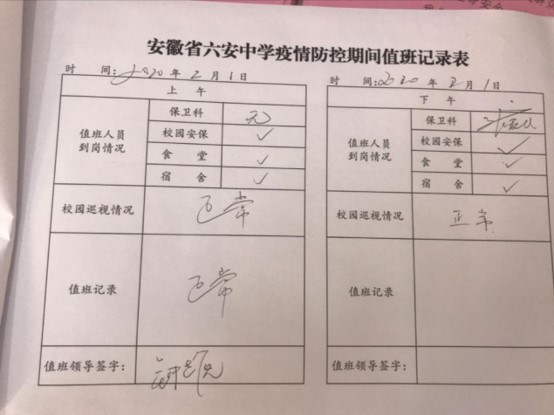 安徽省六安中学疫情防控期间值班记录表
时 间:2020年2月1日
上 午
值班人员到岗情况
保卫科 元
校园安保 ✓
食 堂 ✓
宿 舍 ✓
校园巡视情况 正常
值班记录 正常
值班领导签字:
时 间:2020年2月1日
下 午
值班人员到岗情况
保卫科
校园安保 ✓
食 堂 ✓
宿 舍 ✓
校园巡视情况 正常
值班记录
值班领导签字: